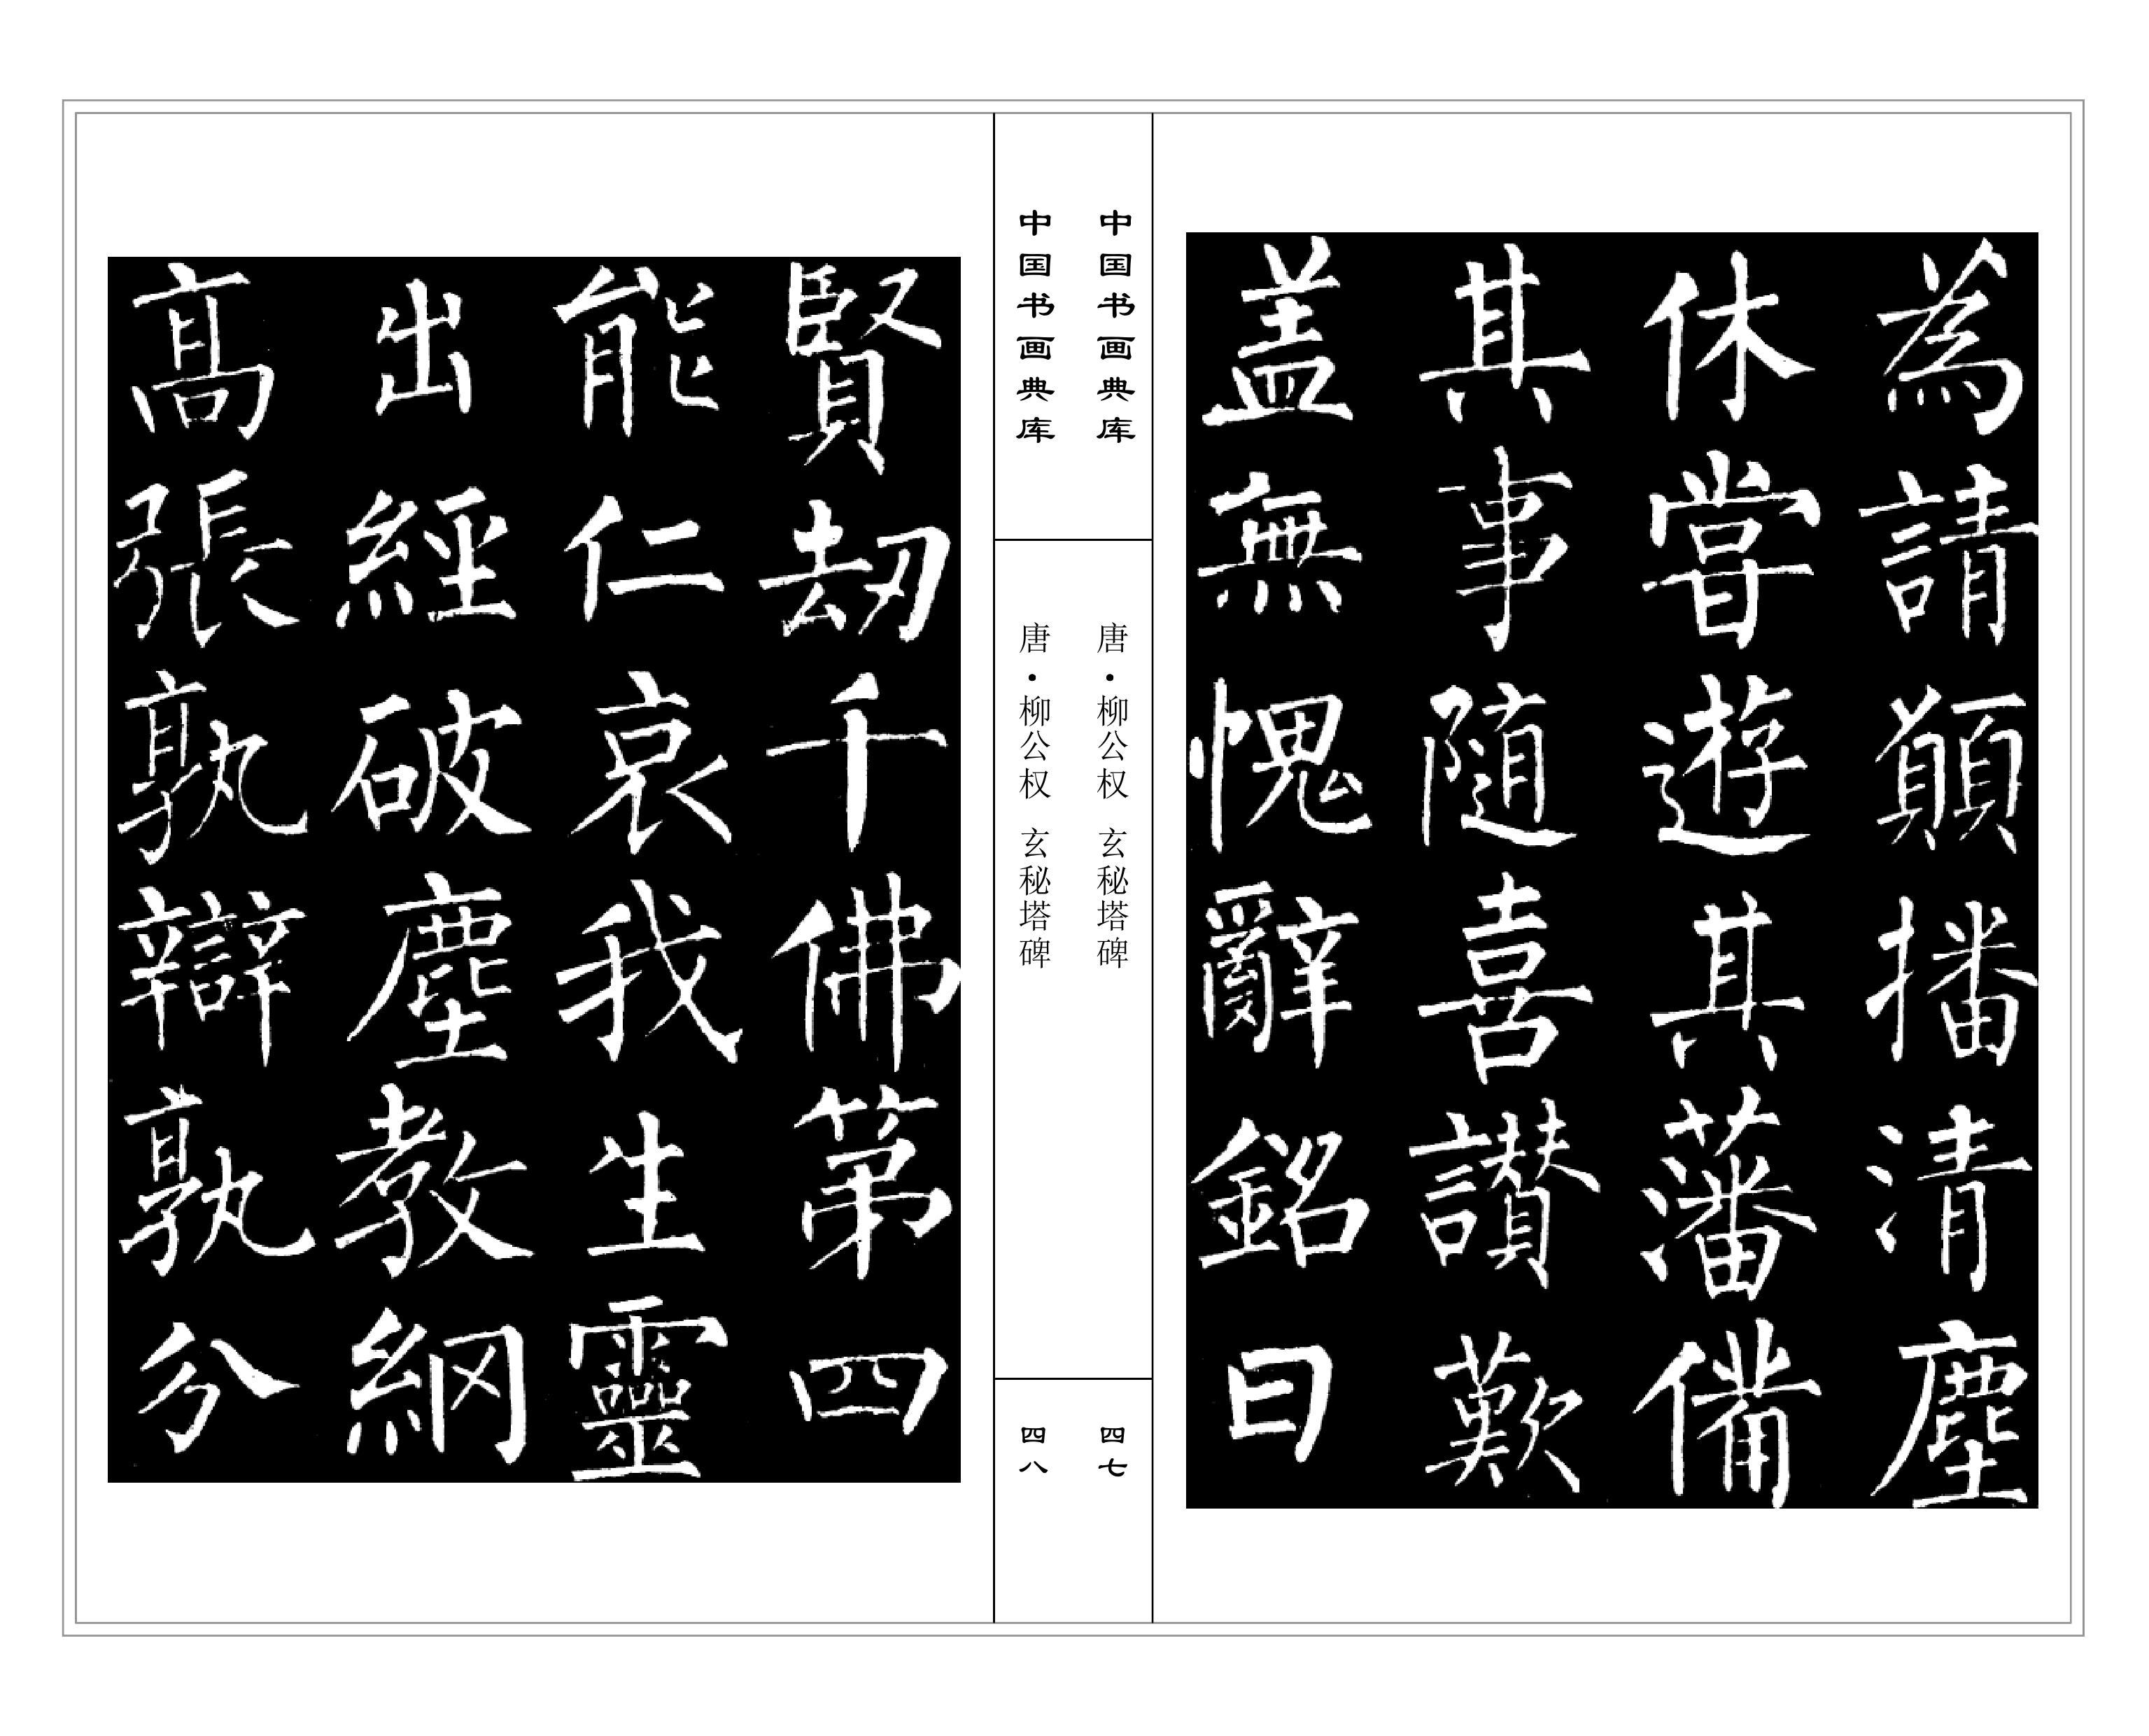 為請願播清塵
休嘗遊其藩備
其事随喜讃歎
盖無愧辭銘曰
中国书画典库
唐·柳公权 玄秘塔碑
四七
中国书画典库
唐·柳公权 玄秘塔碑
四八
賢劫千佛第四
能仁哀我生靈
出經破塵教網
高張孰辯孰分